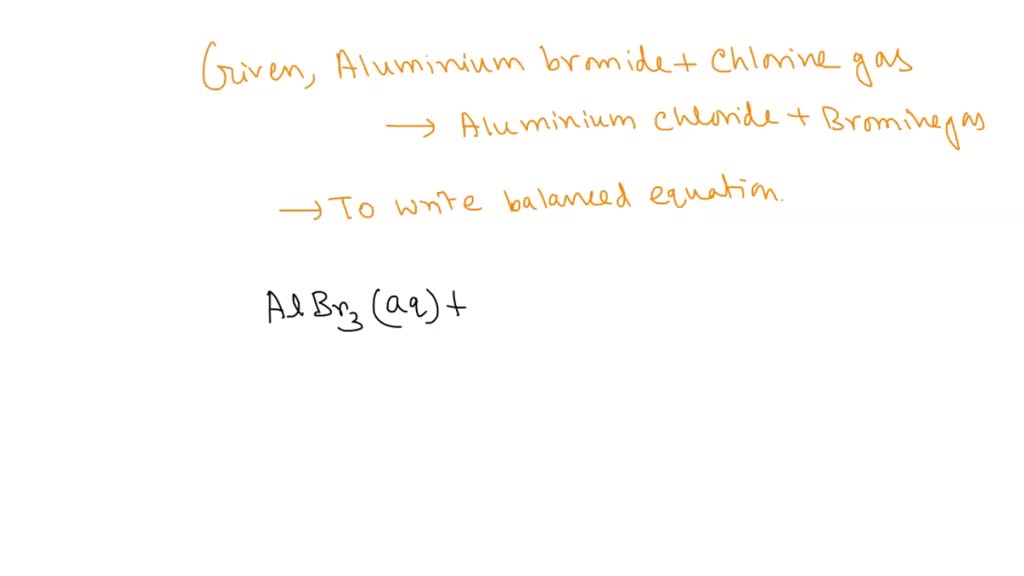 Given, Aluminium bromide + Chlorine gas
→ Aluminium chloride + Bromine gas
→ To write balanced equation.
AlBr₃ (aq) +